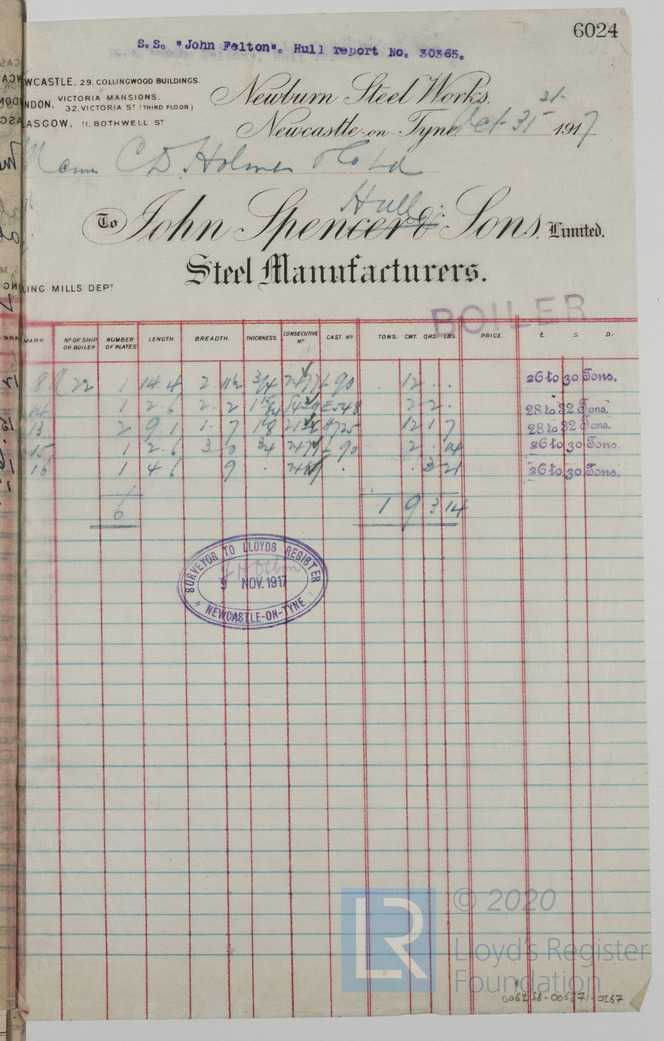 6024
S.S. "John Felton". Hull report No. 30365.
WCASTLE, 29. COLLINGWOOD BUILDINGS.
NDON, VICTORIA MANSIONS, 32, VICTORIA ST (THIRD FLOOR)
ASGOW, 11, BOTHWELL ST
Newburn Steel Works.
Newcastle-on-Tyne, Oct. 31st 1917
C D Holmes & Co Ld
Hull
To John Spencer & Sons, Limited.
Steel Manufacturers.
LING MILLS DEPT
BOILER
MARK. No OF SHIP OR BOILER NUMBER OF PLATES LENGTH. BREADTH. THICKNESS. CONSECUTIVE No CAST No TONS. CWT. QRS. LBS. PRICE. £. S. D.
22 1 14.4 2 11½ 3/4 90 12 . . 26 to 30 Tons.
14 1 2.6 2.2 2 2 . 28 to 32 Tons.
13 2 9 1 1.7 12 1 7 28 to 32 Tons.
15 1 2.6 3 0 3/4 90 2 . 14 26 to 30 Tons.
16 1 4 6 9 . . 3 21 26 to 30 Tons.
6 1 9 3 14
SURVEYOR TO LLOYDS REGISTER
9 NOV. 1917
NEWCASTLE-ON-TYNE
LR
© 2020
Lloyd's Register
Foundation
006258-006271-0267